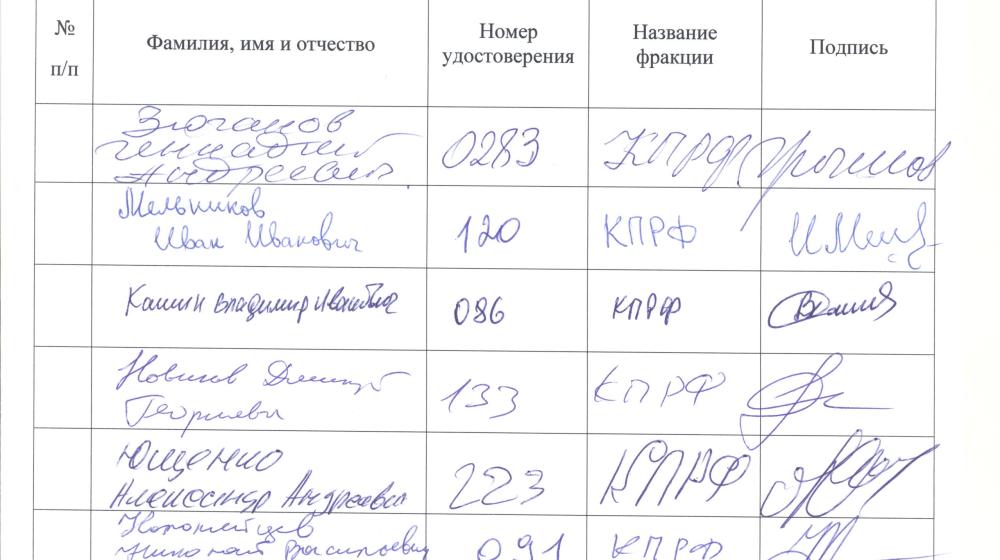 № п/п Фамилия, имя и отчество Номер удостоверения Название фракции Подпись
Зюганов
Геннадий
Андреевич 0283 КПРФ
Мельников
Иван Иванович 120 КПРФ
Кашин Владимир Иванович 086 КПРФ
Новиков Дмитрий
Георгиевич 133 КПРФ
Ющенко
Александр Андреевич 223 КПРФ
Коломейцев
Николай Васильевич 091 КПРФ